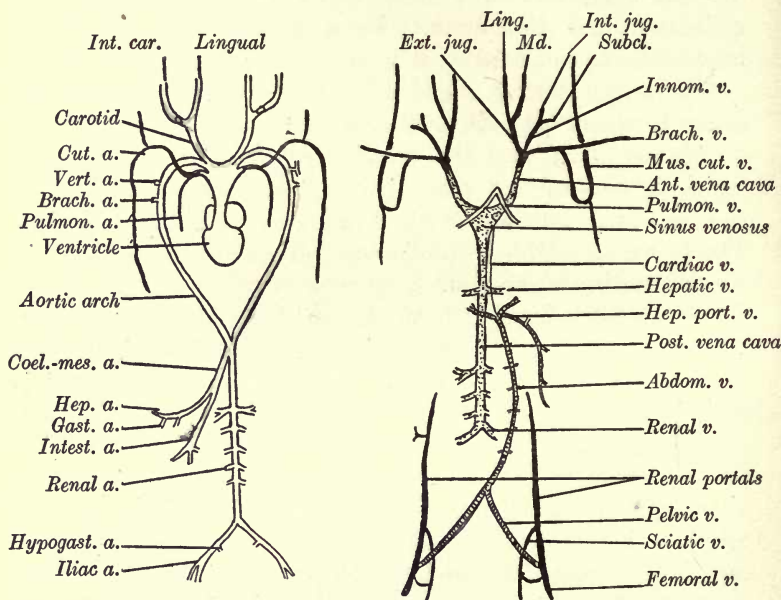 Int. car.
Lingual
Carotid
Cut. a.
Vert. a.
Brach. a.
Pulmon. a.
Ventricle
Aortic arch
Coel.-mes. a.
Hep. a.
Gast. a.
Intest. a.
Renal a.
Hypogast. a.
Iliac a.
Ling.
Int. jug.
Ext. jug.
Md.
Subcl.
Innom. v.
Brach. v.
Mus. cut. v.
Ant. vena cava
Pulmon. v.
Sinus venosus
Cardiac v.
Hepatic v.
Hep. port. v.
Post. vena cava
Abdom. v.
Renal v.
Renal portals
Pelvic v.
Sciatic v.
Femoral v.